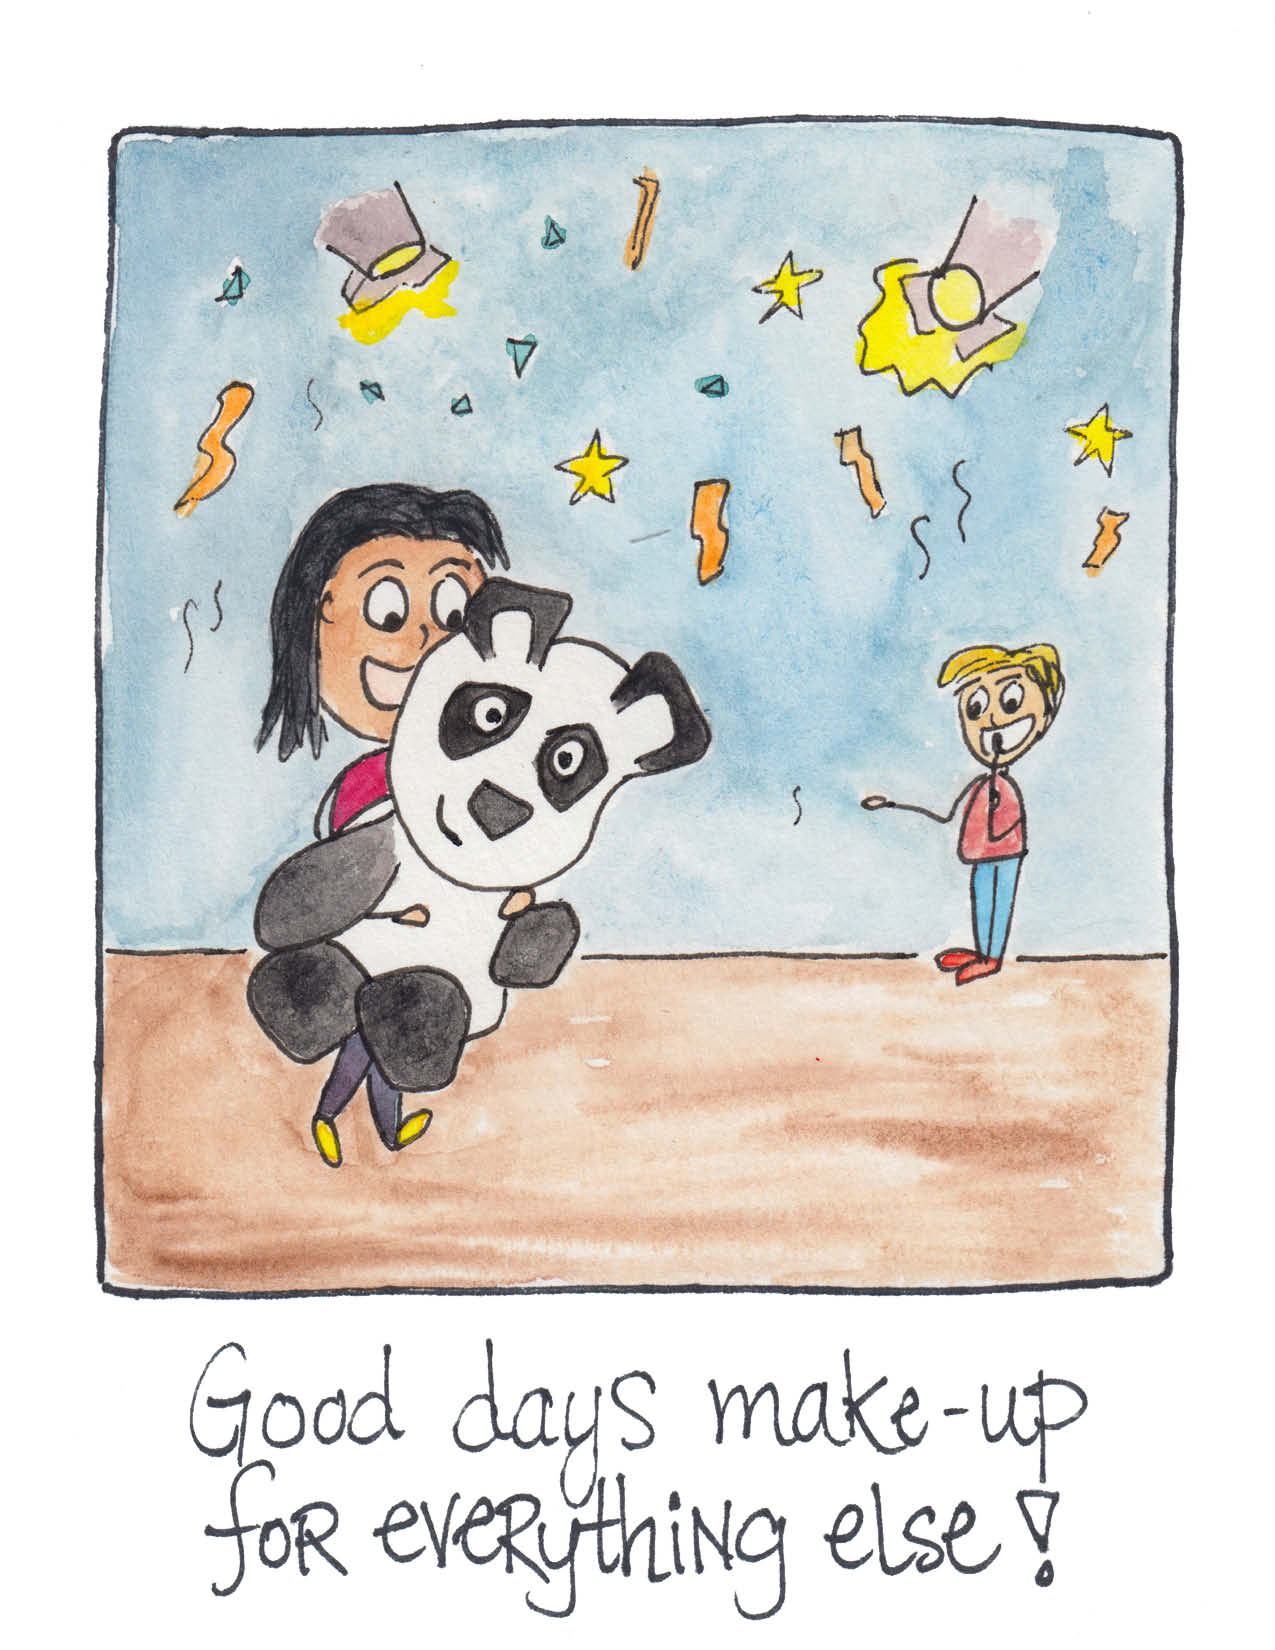 Good days make-up
for everything else!